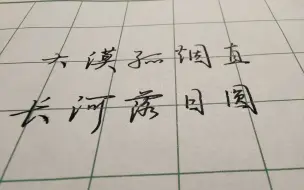 大漠孤烟直
长河落日圆